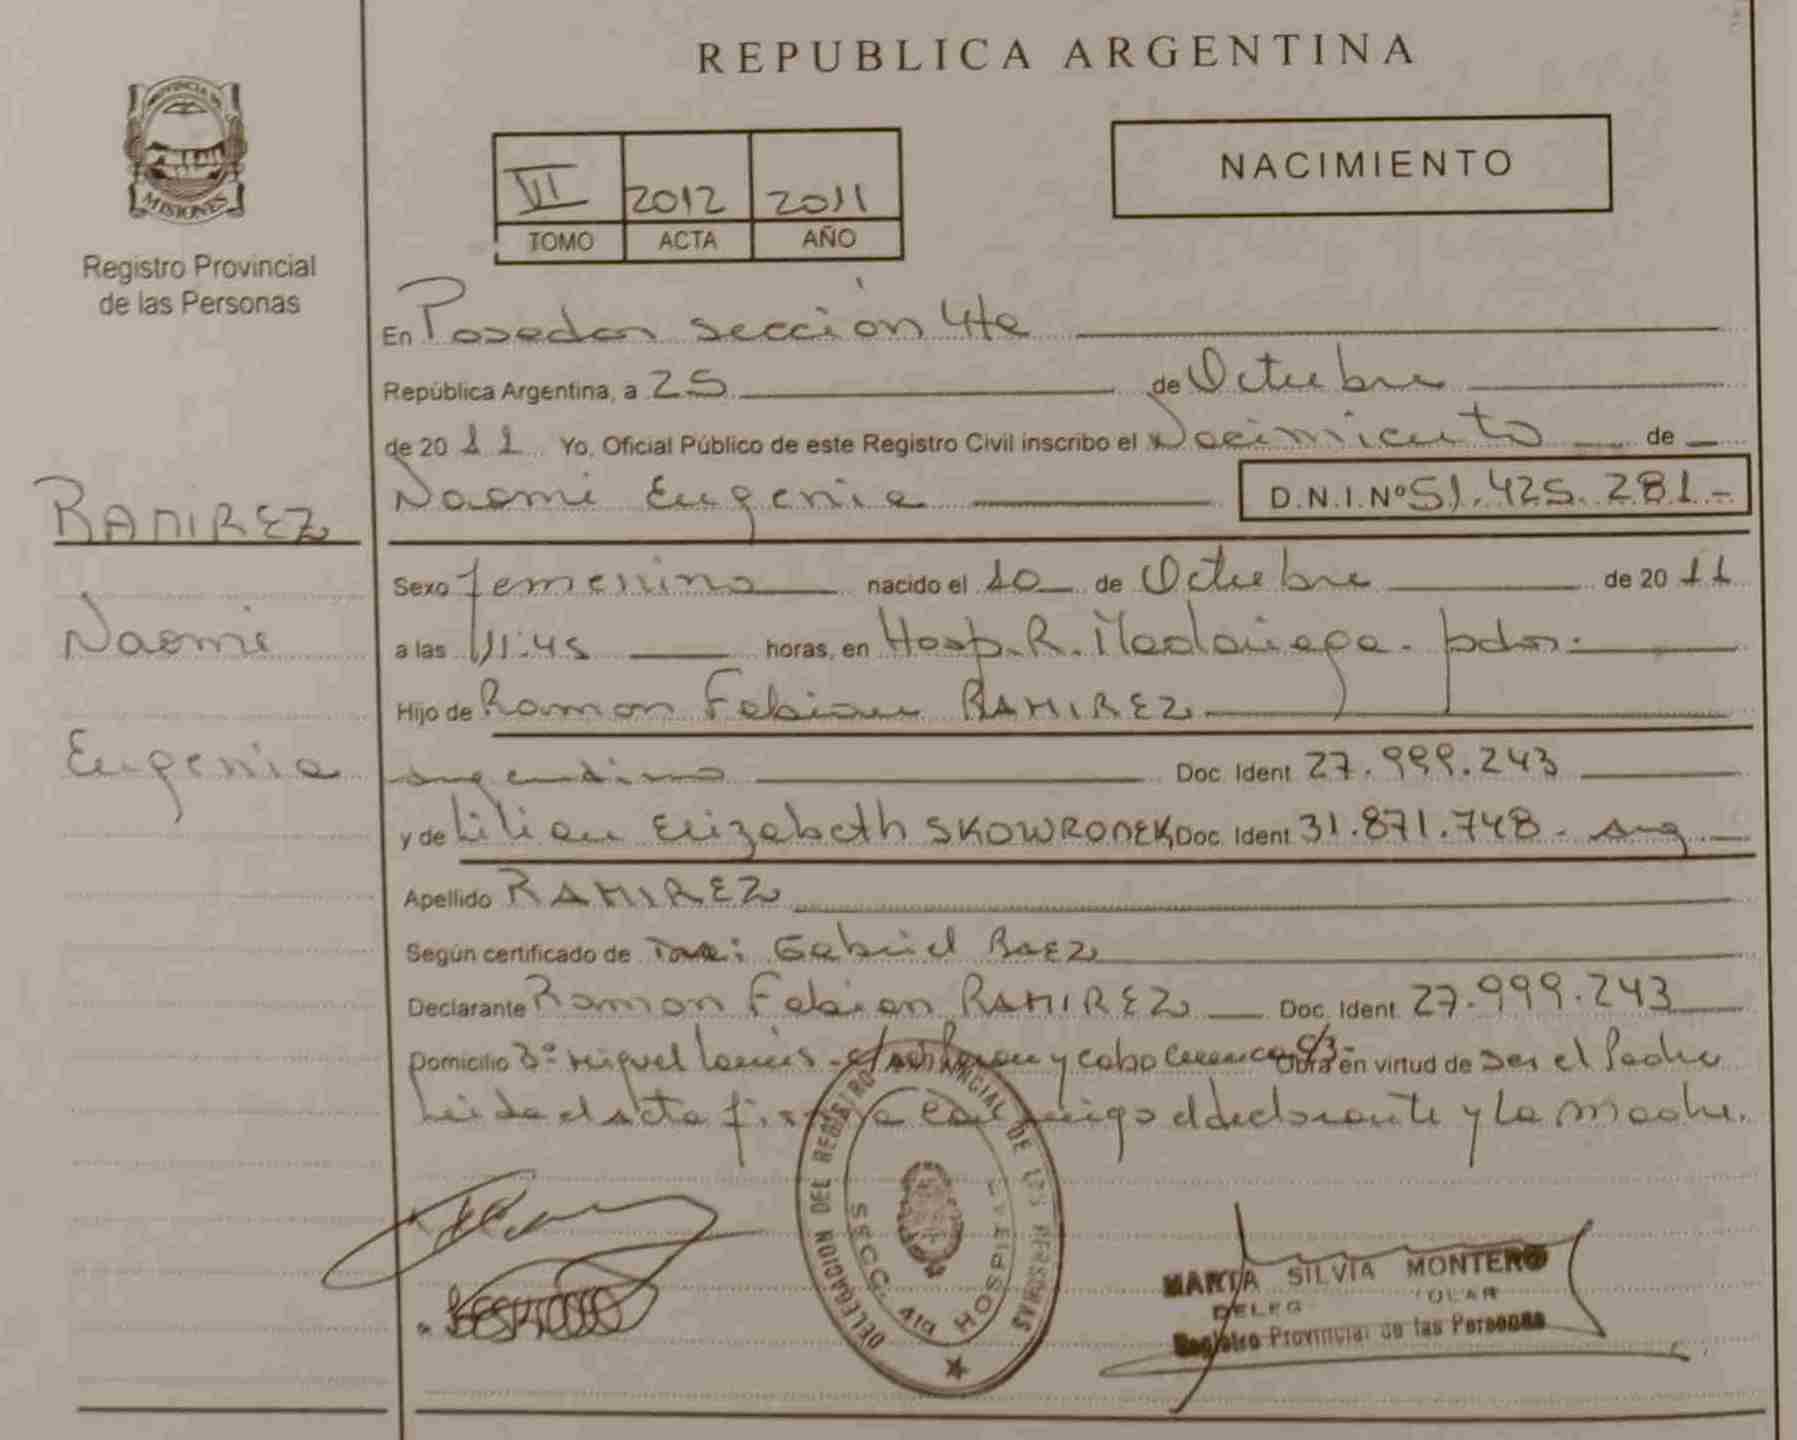 REPUBLICA ARGENTINA
PROVINCIA DE
MISIONES
Registro Provincial
de las Personas
VII 2012 2011
TOMO ACTA AÑO
NACIMIENTO
En Posadas sección 4ta
República Argentina, a 25 de Octubre
de 20 11 Yo, Oficial Público de este Registro Civil inscribo el Nacimiento de
Naomi Eugenia D.N.I.Nº 51.425.281.-
RAMIREZ
Naomi
Eugenia
Sexo femenino nacido el 10 de Octubre de 20 11
a las 11:45 horas, en Hosp. R. Madariaga. pdas.
Hijo de Ramon Fabian RAMIREZ
argentino Doc. Ident. 27.999.243
y de Lilian Elizabeth SKOWRONEK Doc. Ident. 31.871.748 - arg
Apellido RAMIREZ
Según certificado de Gabriel Baez
Declarante Ramon Fabian RAMIREZ Doc. Ident. 27.999.243
Domicilio Bº Miguel y cabo Obra en virtud de ser el Padre
Leida el acta firma conmigo el declarante y la madre.
DELEGACION DEL REGISTRO PROVINCIAL DE LAS PERSONAS
SECC. 4ta HOSPITAL
MARTA SILVIA MONTERO
Registro Provincial de las Personas